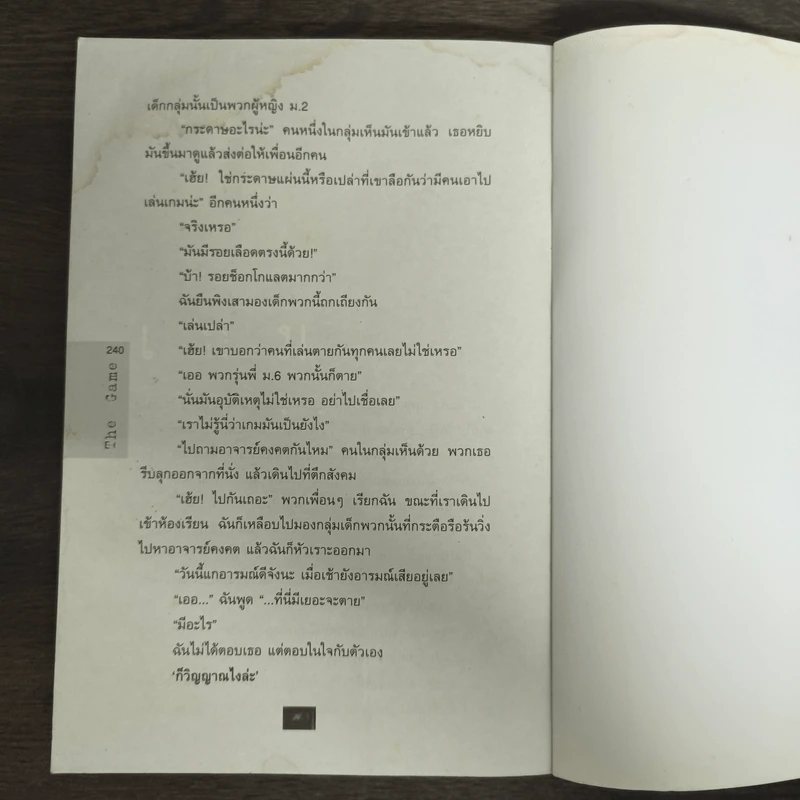 เด็กกลุ่มนั้นเป็นพวกผู้หญิง ม.2
“กระดาษอะไรน่ะ” คนหนึ่งในกลุ่มเห็นมันเข้าแล้ว เธอหยิบ
มันขึ้นมาดูแล้วส่งต่อให้เพื่อนอีกคน
“เฮ้ย! ใช่กระดาษแผ่นนี้หรือเปล่าที่เขาลือกันว่ามีคนเอาไป
เล่นเกมน่ะ” อีกคนหนึ่งว่า
“จริงเหรอ”
“มันมีรอยเลือดตรงนี้ด้วย!”
“บ้า! รอยช็อกโกแลตมากกว่า”
ฉันยืนพิงเสามองเด็กพวกนี้ถกเถียงกัน
“เล่นเปล่า”
“เฮ้ย! เขาบอกว่าคนที่เล่นตายกันทุกคนเลยไม่ใช่เหรอ”
“เออ พวกรุ่นพี่ ม.6 พวกนั้นก็ตาย”
“นั่นมันอุบัติเหตุไม่ใช่เหรอ อย่าไปเชื่อเลย”
“เราไม่รู้นี่ว่าเกมมันเป็นยังไง”
“ไปถามอาจารย์คงคตกันไหม” คนในกลุ่มเห็นด้วย พวกเธอ
รีบลุกออกจากที่นั่ง แล้วเดินไปที่ตึกสังคม
“เฮ้ย! ไปกันเถอะ” พวกเพื่อนๆ เรียกฉัน ขณะที่เราเดินไป
เข้าห้องเรียน ฉันก็เหลือบไปมองกลุ่มเด็กพวกนั้นที่กระตือรือร้นวิ่ง
ไปหาอาจารย์คงคต แล้วฉันก็หัวเราะออกมา
“วันนี้แกอารมณ์ดีจังนะ เมื่อเช้ายังอารมณ์เสียอยู่เลย”
“เออ...” ฉันพูด “...ที่นี่มีเยอะจะตาย”
“มีอะไร”
ฉันไม่ได้ตอบเธอ แต่ตอบในใจกับตัวเอง
‘ก็วิญญาณไงล่ะ’
240
The Game